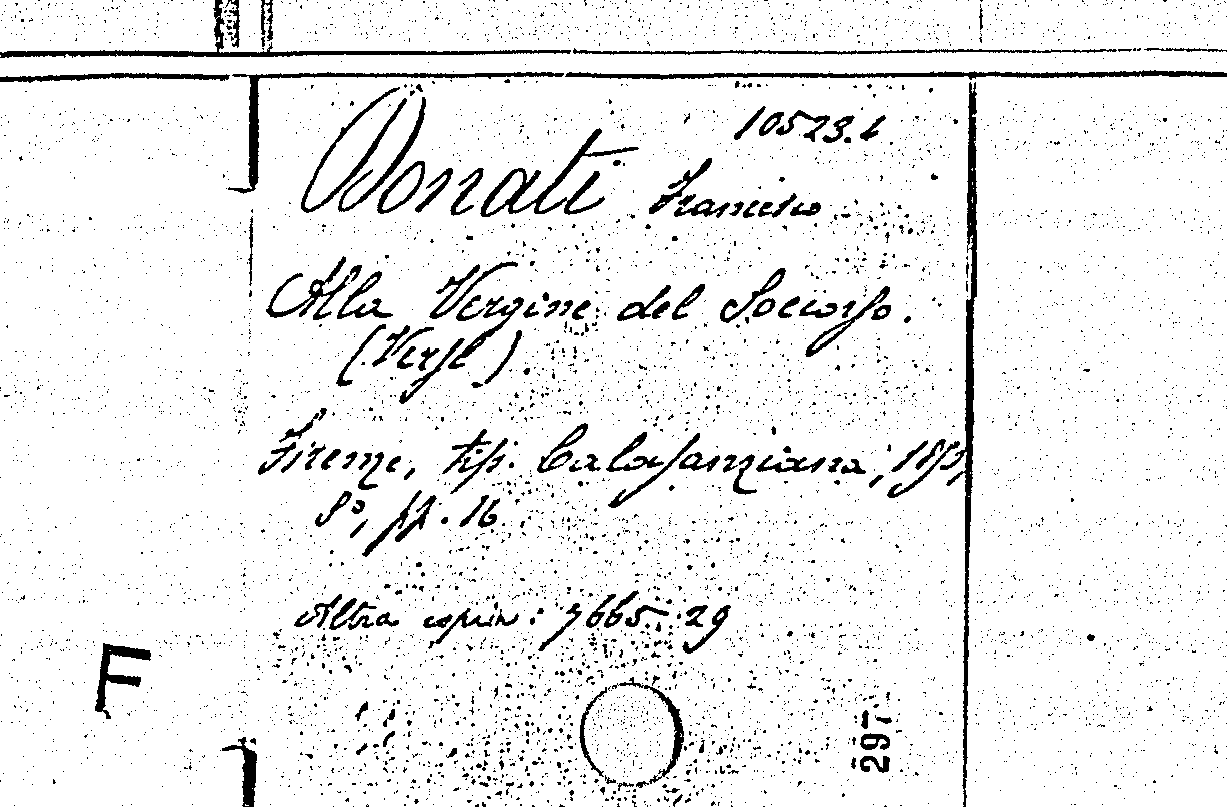 10523.1
Donati Francesco
Alla Vergine del Soccorso.
(Versi).
Firenze, tip. Calasanziana, 
8°, pp. 16
Altra copia: 7665.29
F
297